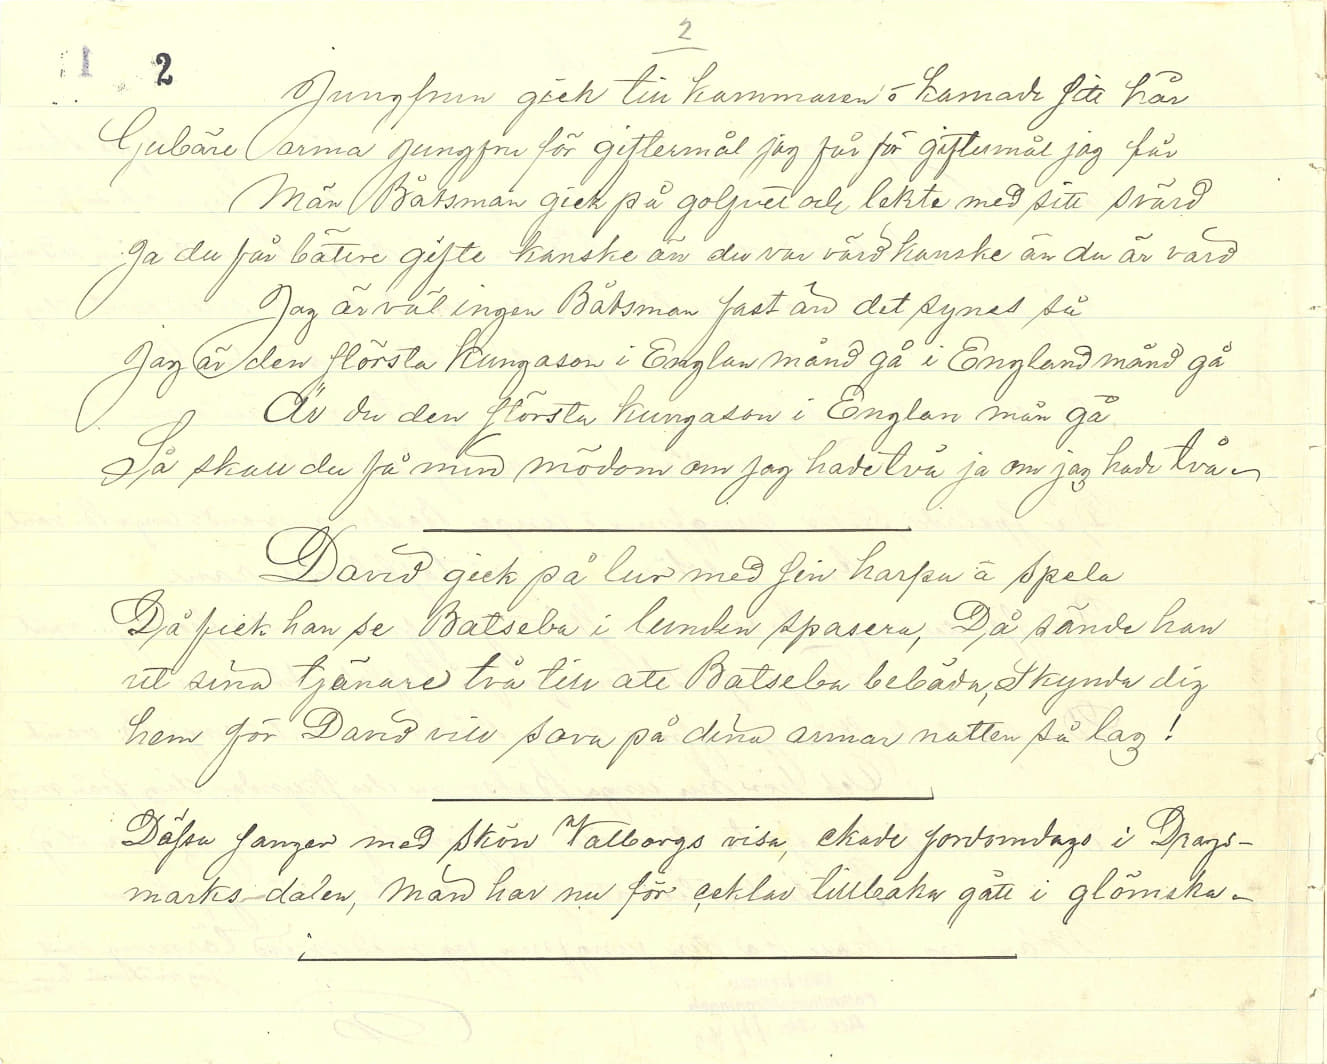 2
1 2
Jungfrun gick till kammaren ö kamade sitt hår
Gubäre arma jungfru för giftermål jag får för giftermål jag får
Män Båtsman gick på golfvet och lekte med sitt svärd
Ja du får bättre gifte kanske än du var värd kanske än du är värd
Jag är väl ingen Båtsman fast än det synes så
Jag är den största kungason i Englan månd gå i England månd gå
Är du den största kungason i Englan mån gå
Så skall du få min mödom om jag hade två ja om jag hade två
David gick på lur med sin harpa ä spela
Då fick han se Batseba i lunden spasera, Då sände han
ut sina tjänare två till att Batseba bebåda, Skynda dig
hem för David vill sova på dina armar natten så lag!
Dässa sanger med skön Valborgs visa, ekade fordomdags i Drags-
marks-dalen, män har nu för seklar tillbaka gått i glömska